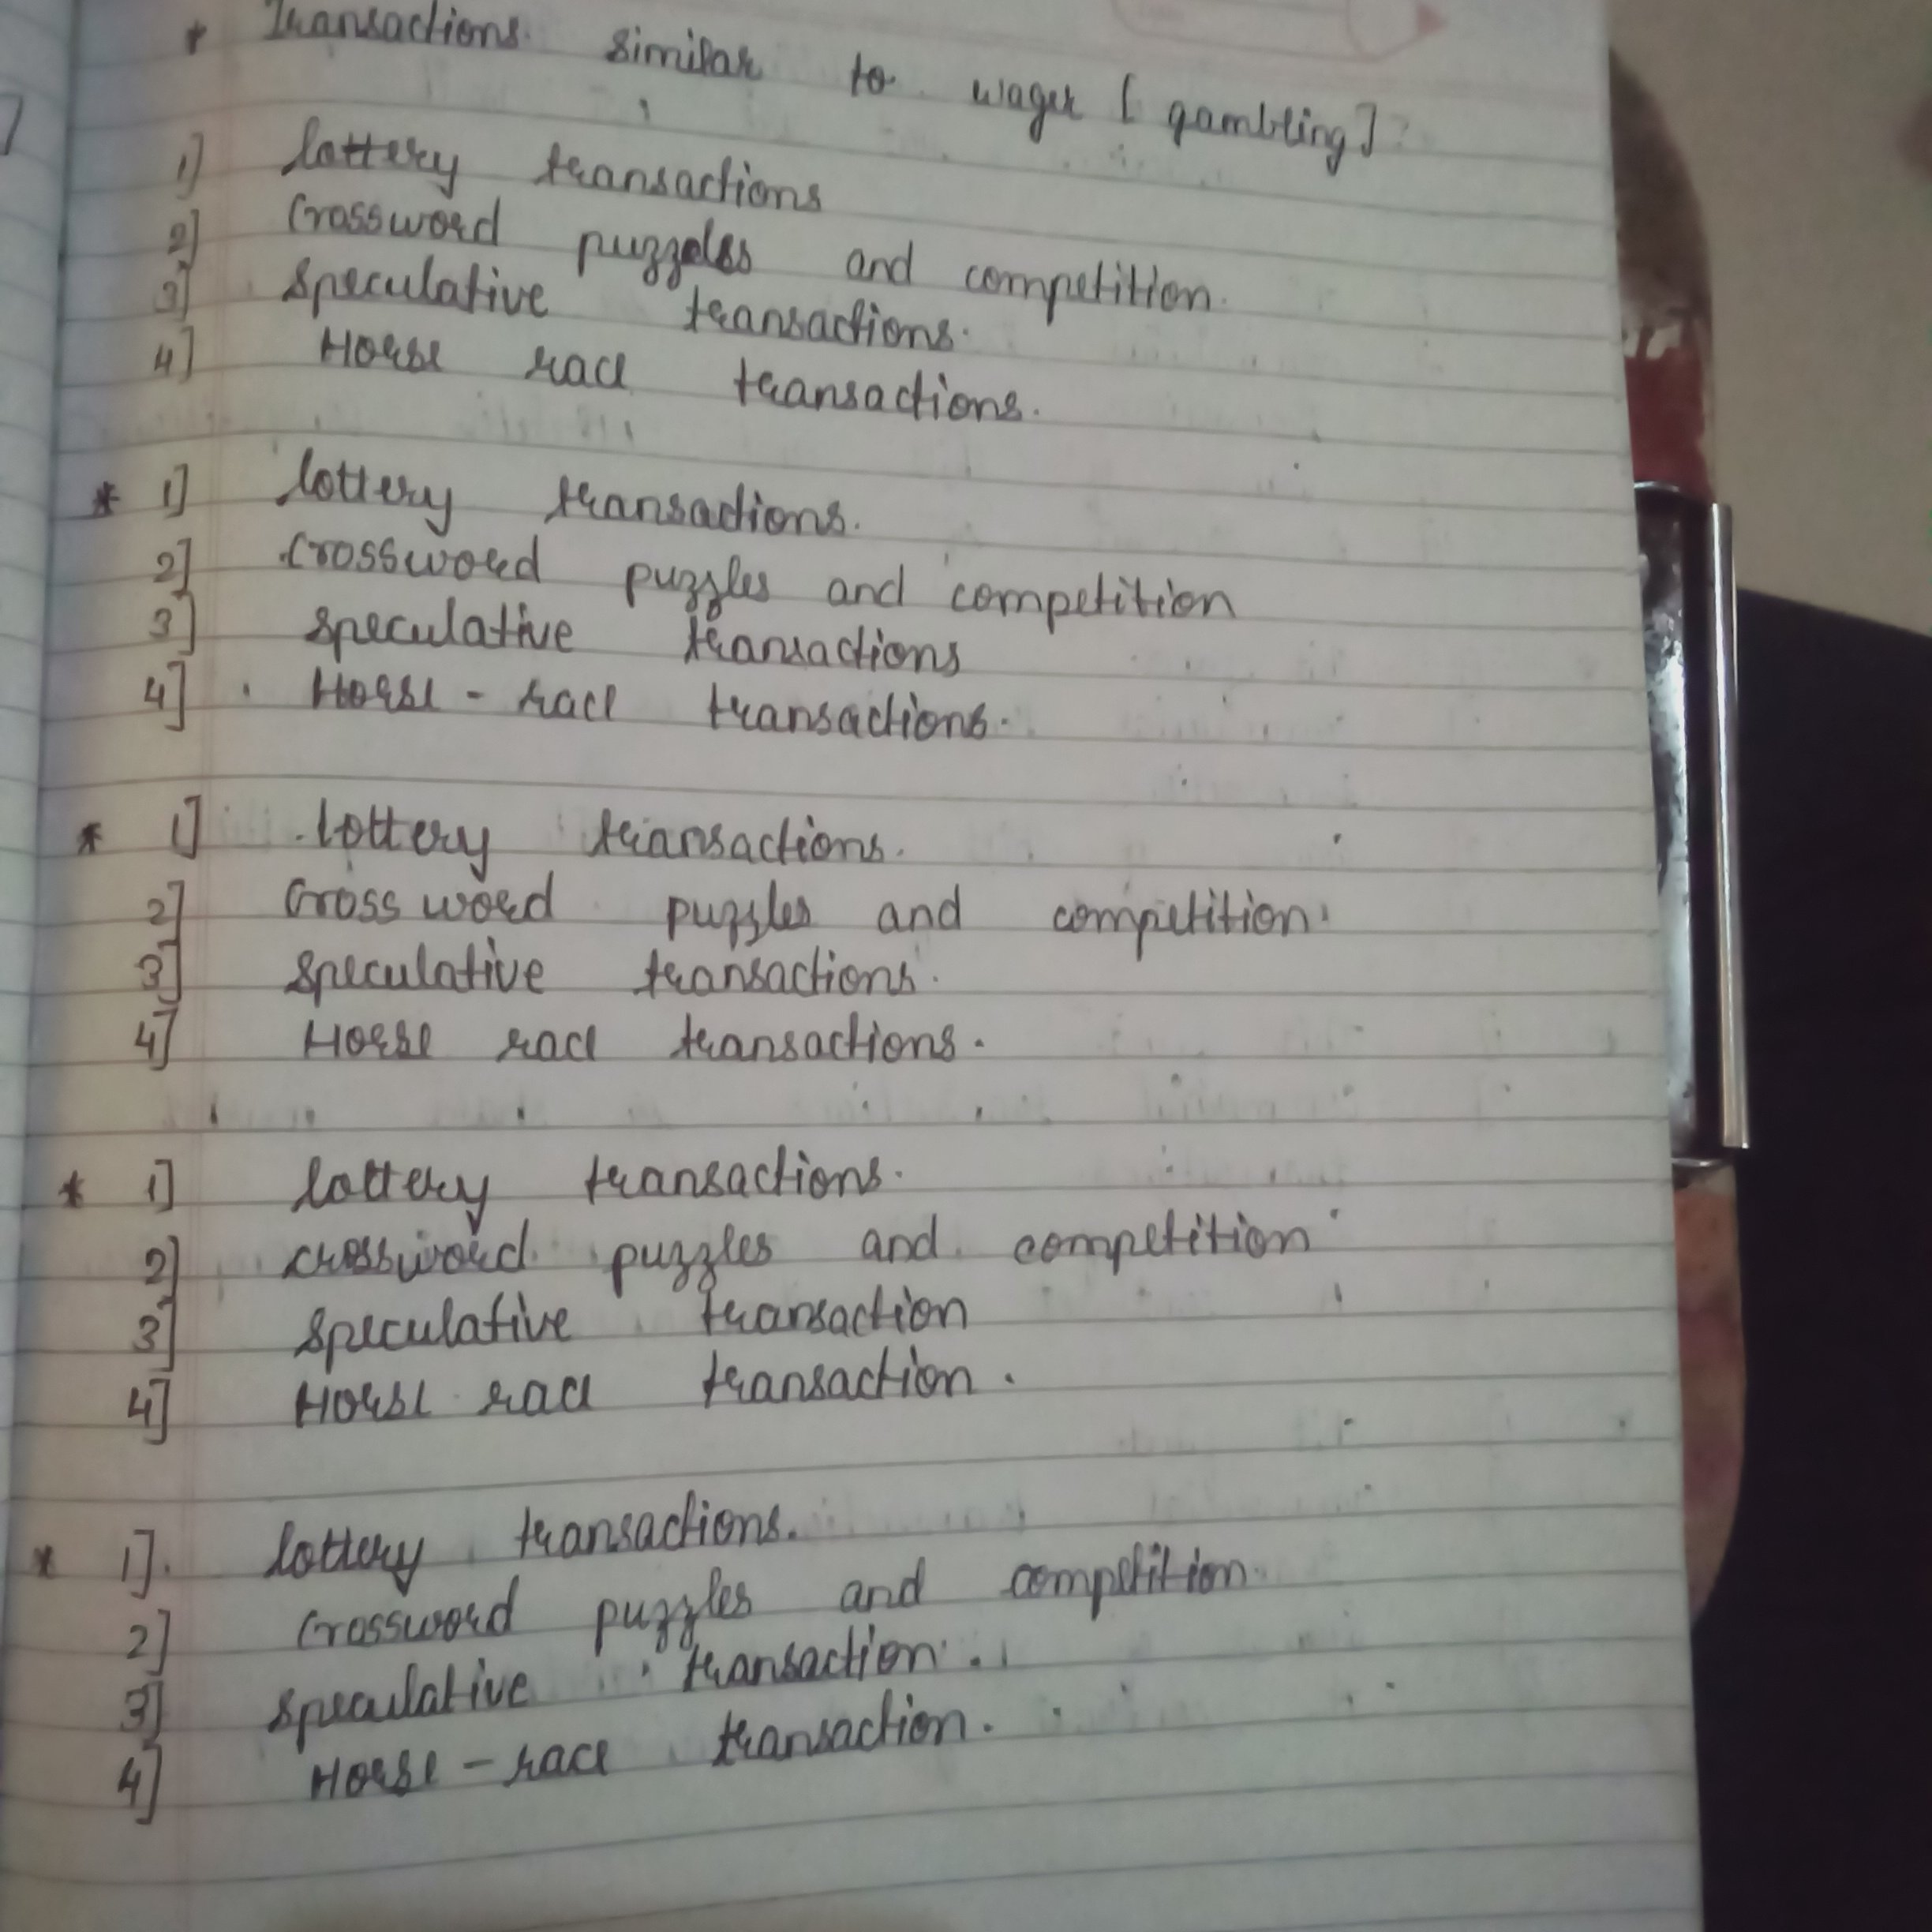 * Transactions similar to wager [gambling]?
1] lottery transactions
2] Crossword puzzles and competition.
3] speculative transactions.
4] Horse race transactions.
* 1] lottery transactions.
2] Crossword puzzles and competition
3] speculative transactions
4] Horse - race transactions.
* 1] lottery transactions.
2] Cross word puzzles and competition.
3] speculative transactions.
4] Horse race transactions.
* 1] lottery transactions.
2] crossword puzzles and competition
3] speculative transaction
4] Horse race transaction.
* 1]. lottery transactions.
2] Crossword puzzles and competition.
3] speculative transaction.
4] Horse - race transaction.